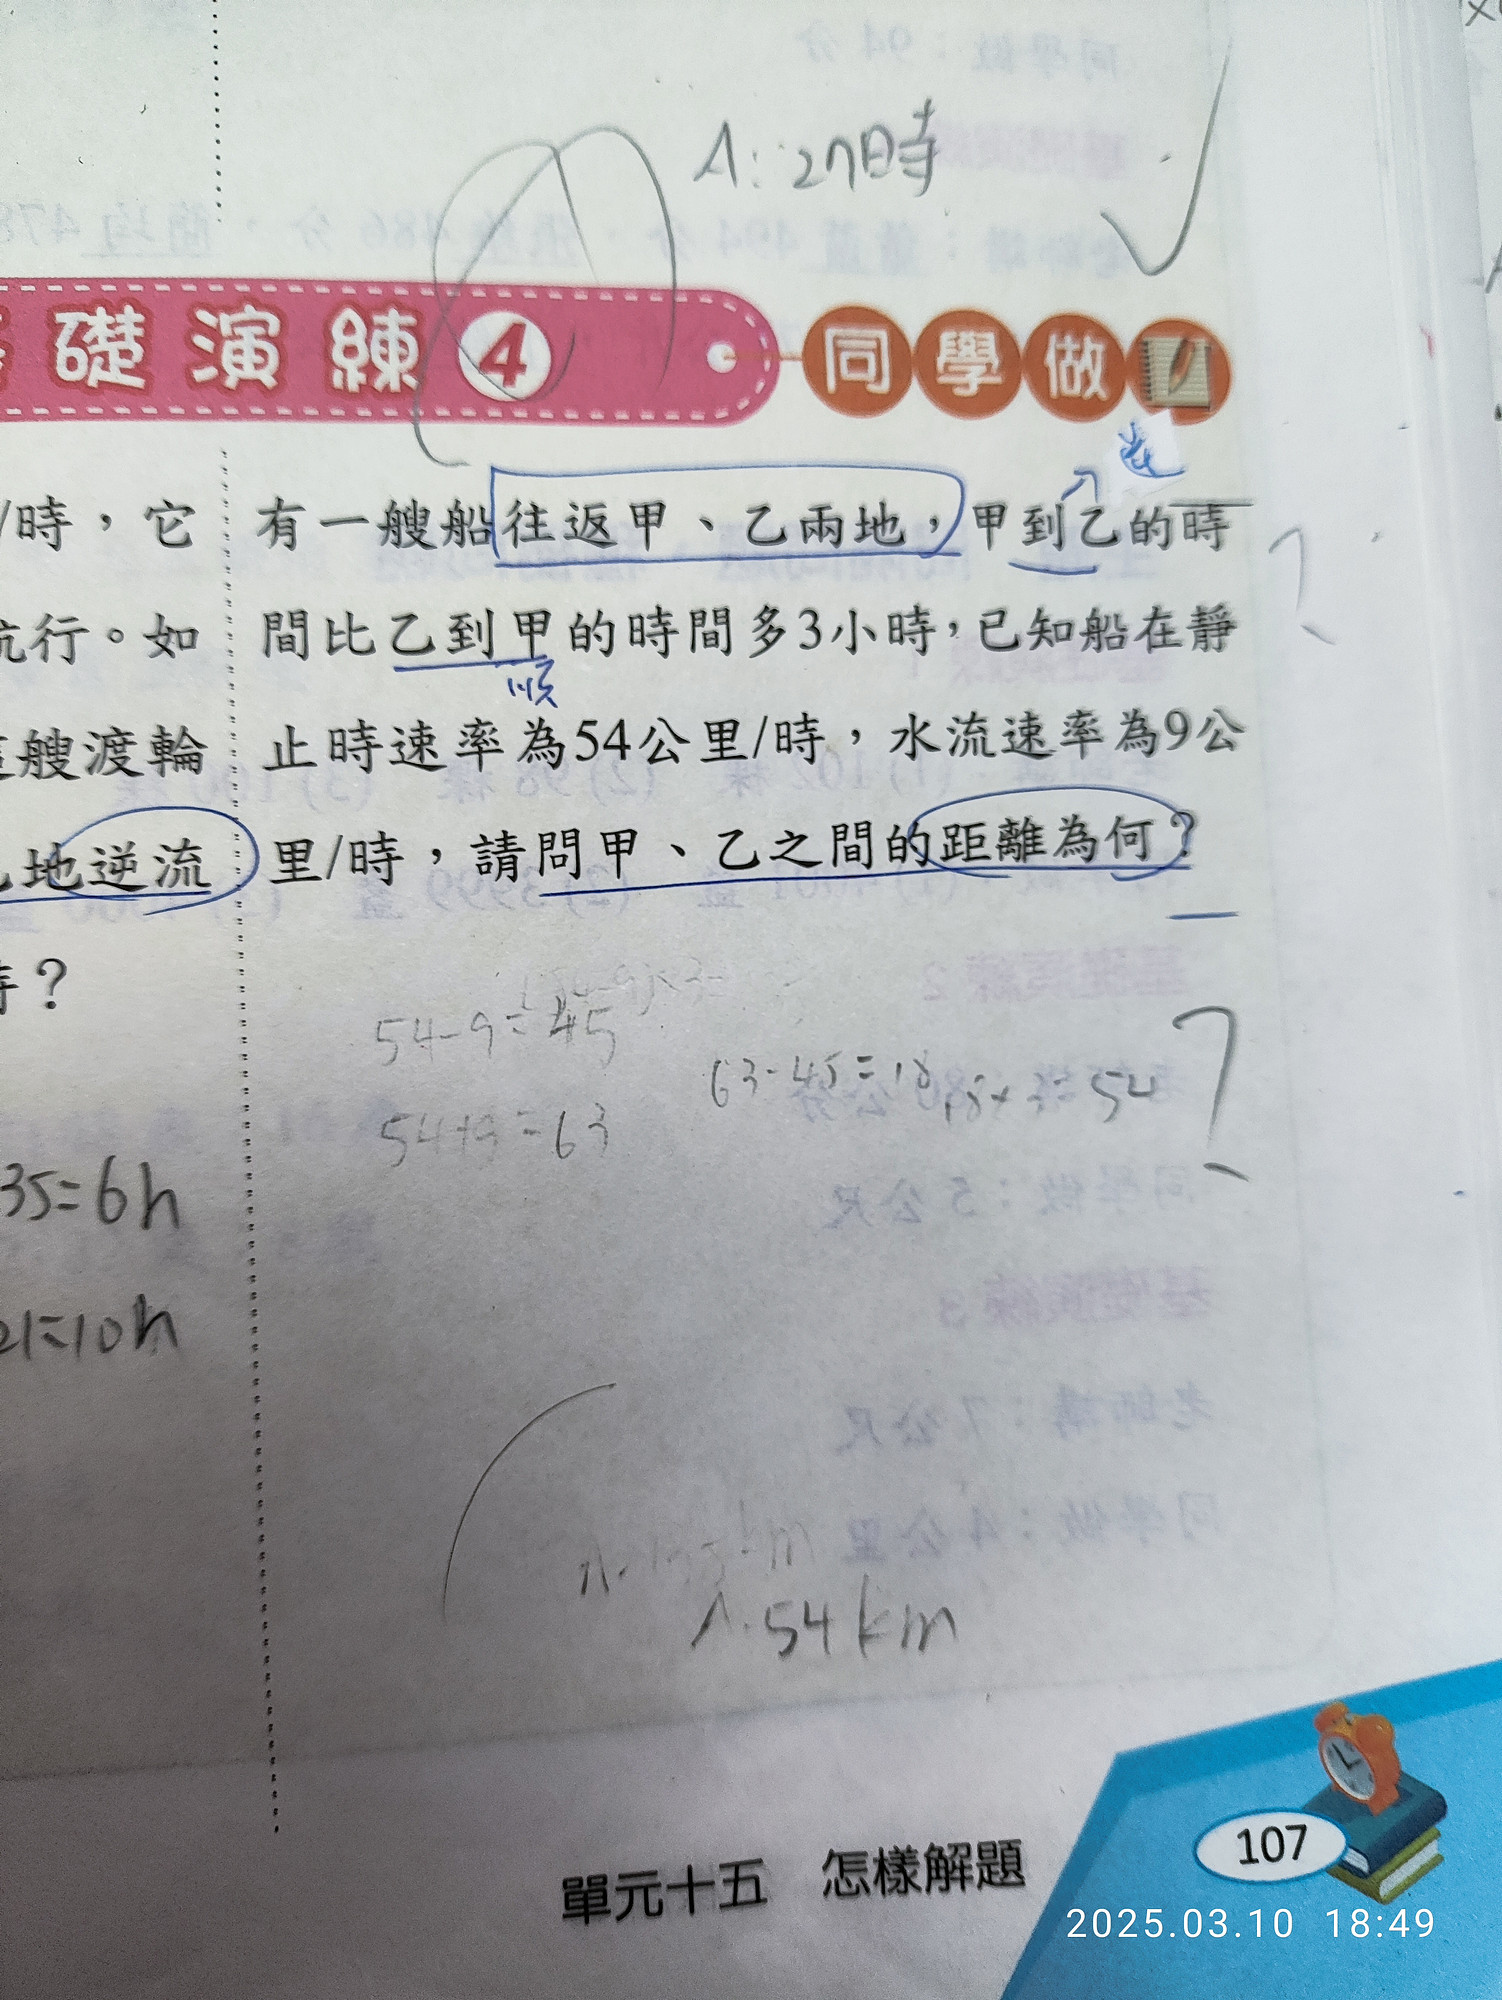 A：27時
礎演練4
同學做
/時，它
航行。如
艘渡輪
地逆流
？
35=6h
21=10h
逆
有一艘船往返甲、乙兩地，甲到乙的時
間比乙到甲的時間多3小時，已知船在靜
順
止時速率為54公里/時，水流速率為9公
里/時，請問甲、乙之間的距離為何？
54-9=45
63-45=18
18×3=54
？
54+9=63
A.54km
單元十五 怎樣解題
107
2025.03.10 18:49